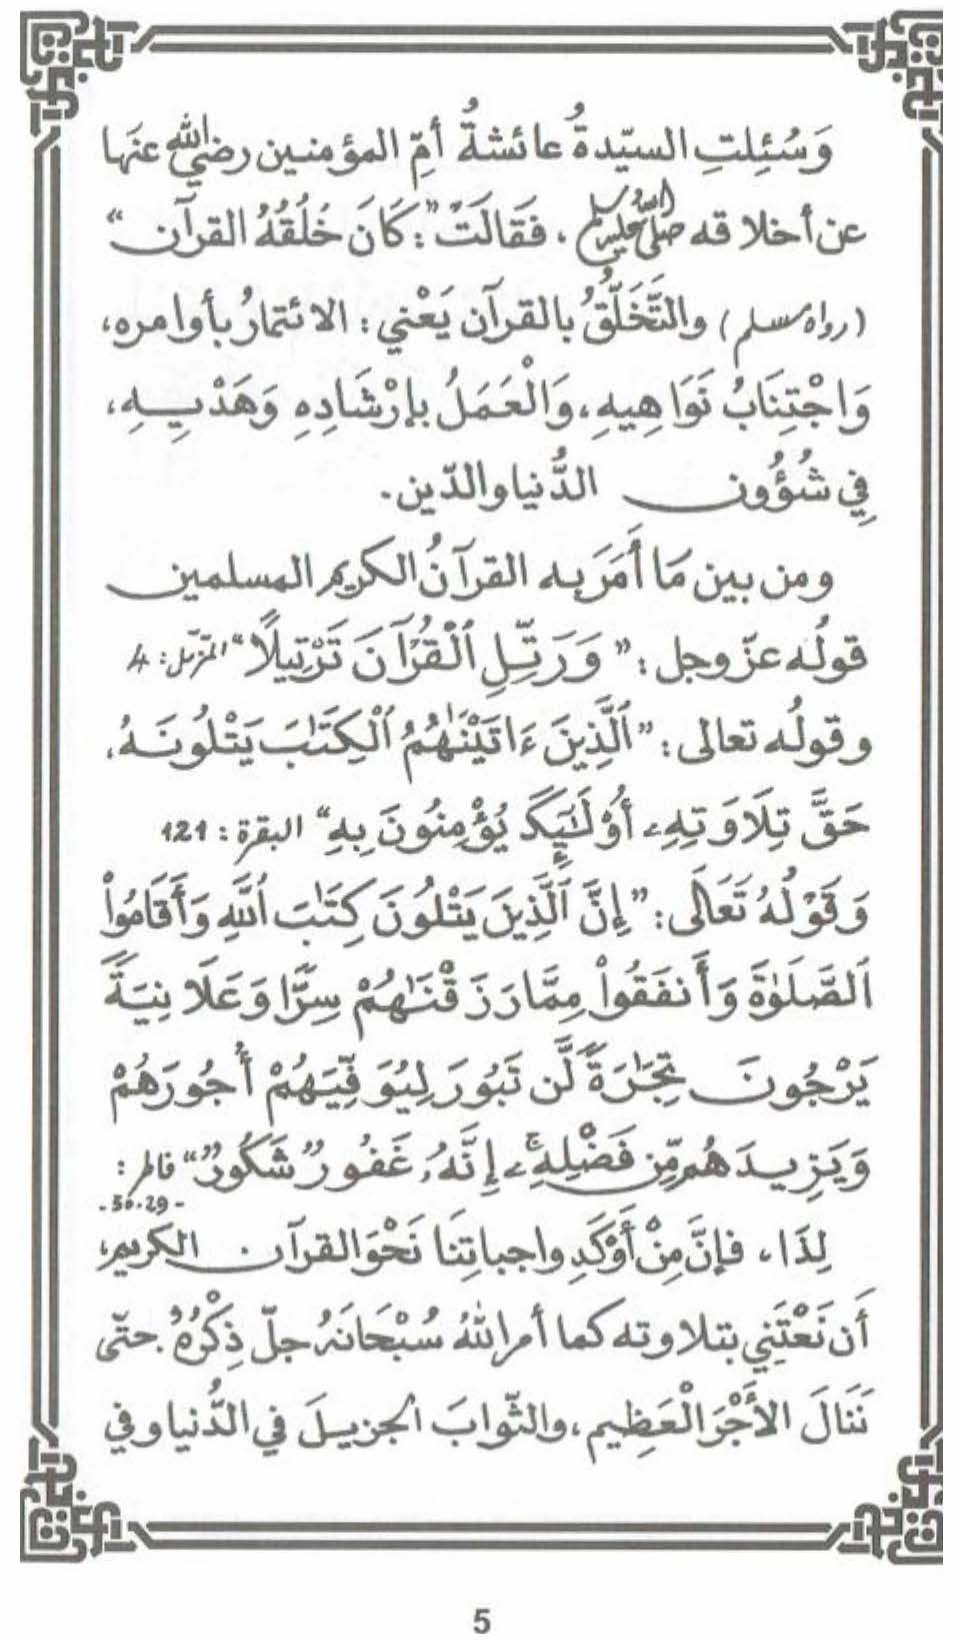 وَسُئِلتِ السيّدةُ عائشةُ أمُّ المؤمنين رضي الله عنها
عن أخلاقه صلى الله عليه وسلم، فَقَالَتْ: "كَانَ خُلُقُهُ القرآن"
(رواه مسلم) والتَّخَلُّقُ بالقرآن يَعْني: الائتمارُ بأوامره،
وَاجْتِنَابُ نَوَاهِيهِ، وَالْعَمَلُ بإرْشَادِهِ وَهَدْيِهِ،
فِي شُؤُون الدُّنيا والدّين.
ومن بين مَا أَمَرَ به القرآنُ الكريم المسلمين
قولُه عزّ وجل: "وَرَتِّلِ اِلْقُرْآنَ تَرْتِيلًا" المزّمّل: 4
وقولُه تعالى: "اَلَّذِينَ ءَاتَيْنَٰهُمُ اُلْكِتَٰبَ يَتْلُونَهُ،
حَقَّ تِلَاوَتِهِۦ أُوْلَٰٓئِكَ يُؤْمِنُونَ بِهِ" البقرة: 121
وَقَوْلُهُ تَعَالَى: "إِنَّ اَلَّذِينَ يَتْلُونَ كِتَٰبَ اَللَّهِ وَأَقَامُواْ
اَلصَّلَوٰةَ وَأَنفَقُواْ مِمَّا رَزَقْنَٰهُمْ سِرّٗا وَعَلَانِيَةٗ
يَرْجُونَ تِجَٰرَةٗ لَّن تَبُورَ لِيُوَفِّيَهُمْ أُجُورَهُمْ
وَيَزِيدَهُم مِّن فَضْلِهِۦٓ إِنَّهُۥ غَفُورٞ شَكُورٞ" فاطر:
-30.29-
لِذَا، فإنَّ مِنْ أَوْكَدِ واجباتِنَا نَحْوَ القرآن الكريم،
أَن نَعْتَنِي بتلاوته كما أمر اللهُ سُبْحَانَهُ جلّ ذِكْرُهُ. حتّى
نَنَالَ الأَجْرَ الْعَظِيم، والثّوابَ الجزيلَ في الدُّنيا وفي
5